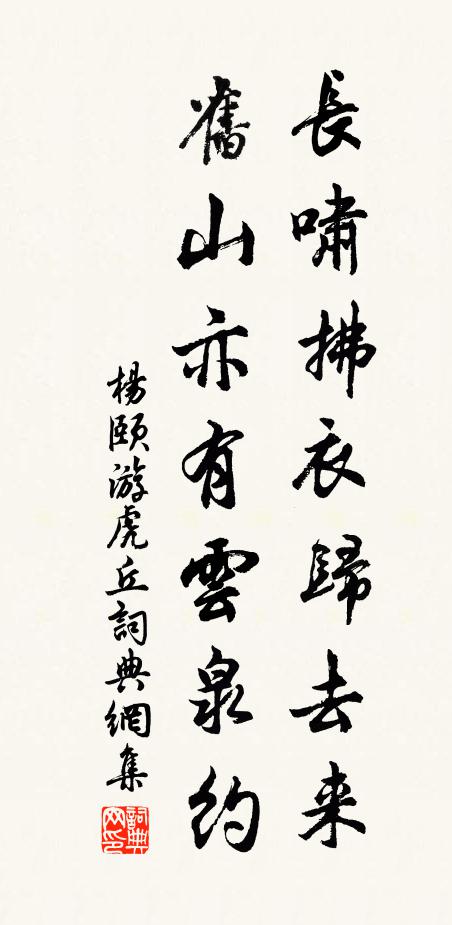 長嘯拂衣歸去来
舊山亦有雲泉約
楊頤游虎丘詞典網集
詞典网印